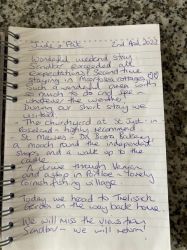 Judi & Pat 2nd April 2022
Wonderful weekend stay
Sandbar exceeded all
expectations! Second time
staying in Meerfolk cottages
Such a wonderful area with
so much to do and see -
whatever the weather
During our short stay we
visited
The Churchyard at St Just-in
Roseland - highly recommend
St Mawes - Da Bara bakery,
a mooch round the independent
shops and a walk up to the
castle
A drive through Veryan
and a stop in Portloe - lovely
Cornish fishing village
Today we head to Trelissick
garden on the way back home
We will miss the views from
Sandbar - we will return!